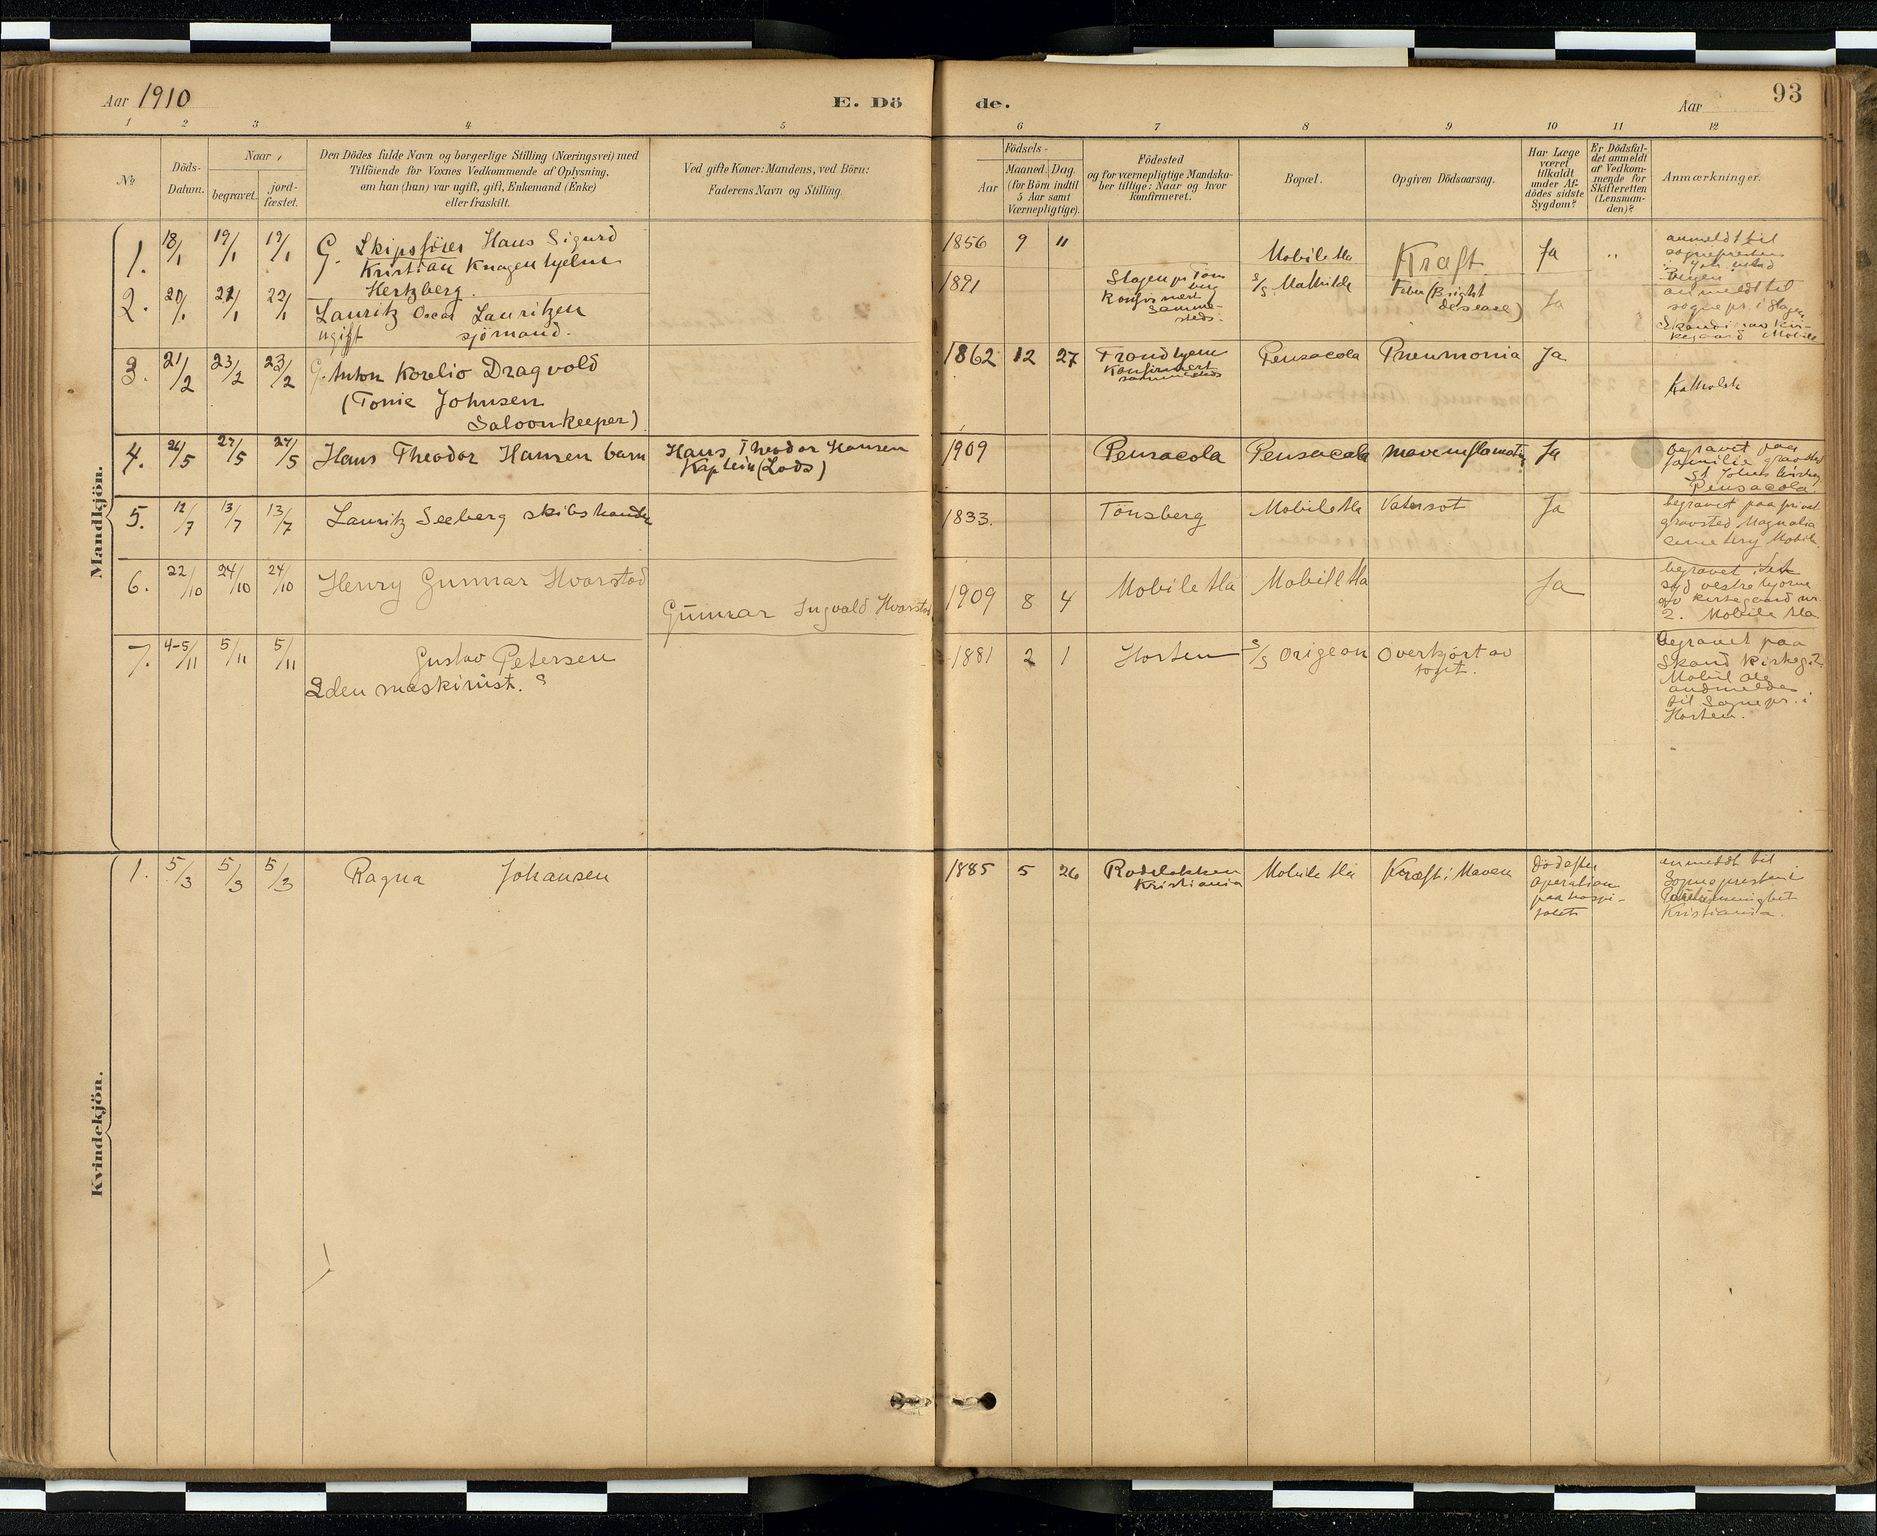 Aar 1910 E. Dö
de. Aar 93
1 2 3 4 5 6 7 8 9 10 11 12
No
Döds-Datum.
Naar
begravet.
jord-fæstet.
Den Dödes fulde Navn og borgerlige Stilling (Næringsvei) med
Tilföiende for Voxnes Vedkommende af Oplysning,
om han (hun) var ugift, gift, Enkemand (Enke)
eller fraskilt.
Ved gifte Koner: Mandens, ved Börn:
Faderens Navn og Stilling.
Födsels-
Aar
Maaned. Dag.
(for Börn indtil
5 Aar samt
Værnepligtige).
Födested
og for værnepligtige Mandska-
ber tillige: Naar og hvor
konfirmeret.
Bopæl.
Opgiven Dödsaarsag.
Har Læge
været
tilkaldt
under Af-
dödes sidste
Sygdom?
Er Dödsfal-
det anmeldt
af Vedkom-
mende for
Skifteretten
(Lensman-
den)?
Anmærkninger.
Mandkjön.
1. 18/1 19/1 19/1 G. Skipsfører Hans Sigurd
Kristian Knagenhjelm
Hertzberg.
1856 9 " Mobile Ala Kræft. Ja "
anmeldt til
sognepresten
2. 20/1 22/1 22/1 Lauritz Oscar Lauritzen
ugift sjömand.
1891 Slagen pr Töns
berg
Konfirmert
Samme-
steds.
S/S. Mathilde
Feber (Bright
desease)
Ja
anmeldt til
sognepr. i Slagen
Skandinav kir-
kegaard Mobile
3. 21/2 23/2 23/2 G. Anton Korelio Dragvold
(Tonie Johnsen
Saloonkeeper)
1862 12 27 Trondhjem
Konfirmert
sammesteds
Pensacola Pneumonia Ja
Katholsk
4. 26/5 27/5 27/5 Hans Theodor Hansen barn
Hans Theodor Hansen
Kaptein (Lods)
1909 Pensacola Pensacola Ja
begravet paa
familie gravsted
St Johns
Pensacola
5. 12/7 13/7 13/7 Lauritz Seeberg
1833. Tönsberg Mobile Ala Vatersot Ja
begravet paa privat
gravsted Magnolia
cemetery Mobile.
6. 22/10 24/10 24/10 Henry Gunnar Hvarstad
Gunnar Ingvald Hvarstad
1909 8 4 Mobile Ala Mobile Ala Ja
begravet i det
syd vestre hjorne
av kirkegaard nr.
2. Mobile Ala
7. 4-5/11 5/11 5/11 Gustav Petersen
2den maskinist.
1881 2 1 Horten S/S Origean Overkjört av
toget.
Begravet paa
Skand Kirkeg.
Mobil Ala
anmeldes
til Sognepr. i
Horten.
Kvindekjön.
1. 5/3 5/3 5/3 Ragna Johansen
1885 5 26 Rodelökken
Kristiania
Mobile Ala Kræft i Maven
Död efter
operation
paa hospi-
talet
anmeldt til
Sognepresten i
menighet
Kristiania.